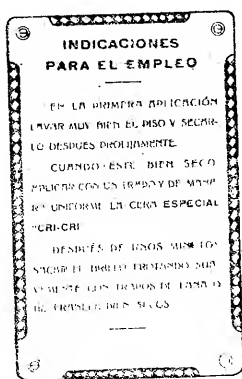 INDICACIONES
PARA EL EMPLEO
EN LA PRIMERA APLICACIÓN
LAVAR MUY BIEN EL PISO Y SECAR-
LO DESPUES PROLIJAMENTE.
CUANDO ESTE BIEN SECO
APLICAR CON UN TRAPO Y DE MANE-
RA UNIFORME LA CERA ESPECIAL
"CRI-CRI"
DESPUÉS DE UNOS MINUTOS
SACAR EL BRILLO FROTANDO SUA-
VEMENTE CON TRAPOS DE LANA O
DE FRANELA BIEN SECOS